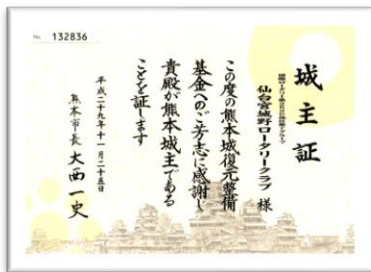 No. 132836
城主証
仙台宮城野ロータリークラブ 様
この度の熊本城復元整備
基金へのご芳志に感謝し
貴殿が熊本城主である
ことを証します
平成二十九年十一月二十五日
熊本市長 大西一史